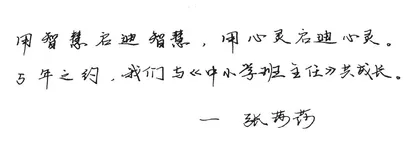 用智慧启迪智慧，用心灵启迪心灵。
5年之约，我们与《中小学班主任》共成长。
— 张莎莎